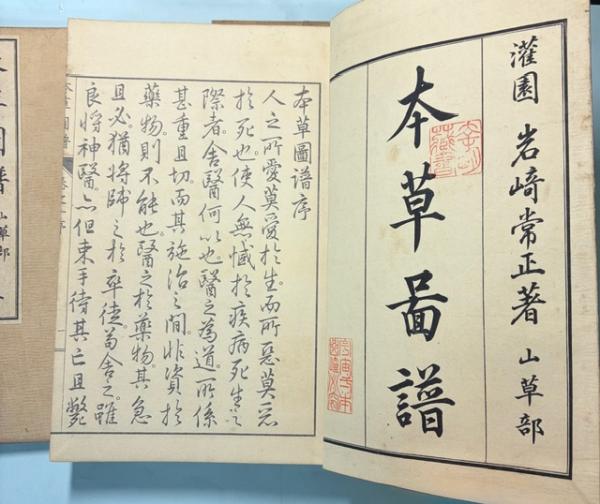 灌園 岩﨑常正著 山草部
本草啚譜
本草圖譜序
人之所愛莫愛於生。而所惡莫惡
於死也。使人無憾於疾病死生之
際者。舍醫何以也。醫之為道。所係
甚重且切。而其施治之間。非資於
藥物。則不能也。醫之於藥物。其急
且必。猶將師之於卒徒。苟舍之。雖
良將神醫。亦但束手待其亡且斃
本草圖譜
山草部